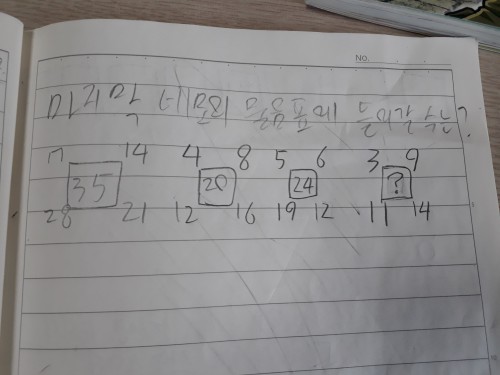 NO.
마지막 네모의 물음표에 들어갈 수는?
7 14 4 8 5 6 3 9
35 20 24 ?
28 21 12 16 19 12 11 14